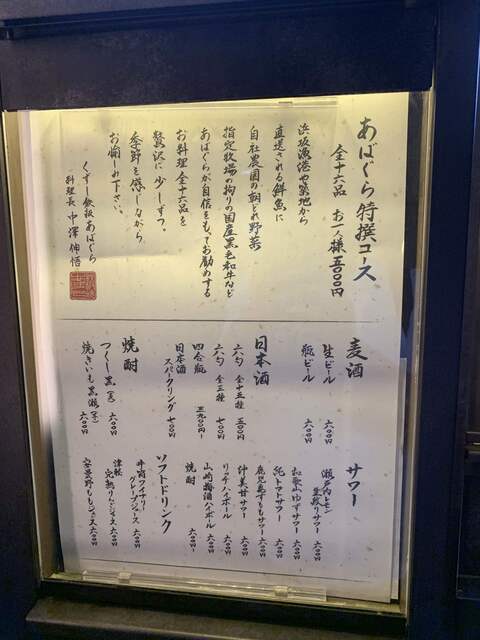 あばぐら特撰コース
全十六品 お一人様 五〇〇〇円
浜坂漁港や築地から
直送される鮮魚に
自社農園の朝どれ野菜
指定牧場の拘りの国産黒毛和牛など
あばぐらが自信をもってお勧めする
お料理全十六品を
贅沢に少しずつ。
季節を感じながら
お愉しみ下さい。
くずし鉄板あばぐら
料理長 中澤伸悟
麦酒
生ビール 六〇〇円
瓶ビール 六〇〇円
日本酒
六勺 全十五種 五〇〇円
六勺 全三種 七〇〇円
四合瓶 三九〇〇円~
日本酒
スパークリング 七〇〇円
焼酎
つくし黒(麦) 六〇〇円
焼きいも黒瀬(芋) 六〇〇円
サワー
瀬戸内レモン
生搾りサワー 六〇〇円
和歌山ゆずサワー 六〇〇円
純トマトサワー 六〇〇円
鹿児島すももサワー 六〇〇円
沖美甘サワー 六〇〇円
リッチハイボール 六〇〇円
山崎梅酒ハイボール 六〇〇円
焼酎 六〇〇円~
ソフトドリンク
井筒ワイナリー
グレープジュース 六〇〇円
津軽
完熟りんごジュース 六〇〇円
安曇野ももジュース 六〇〇円